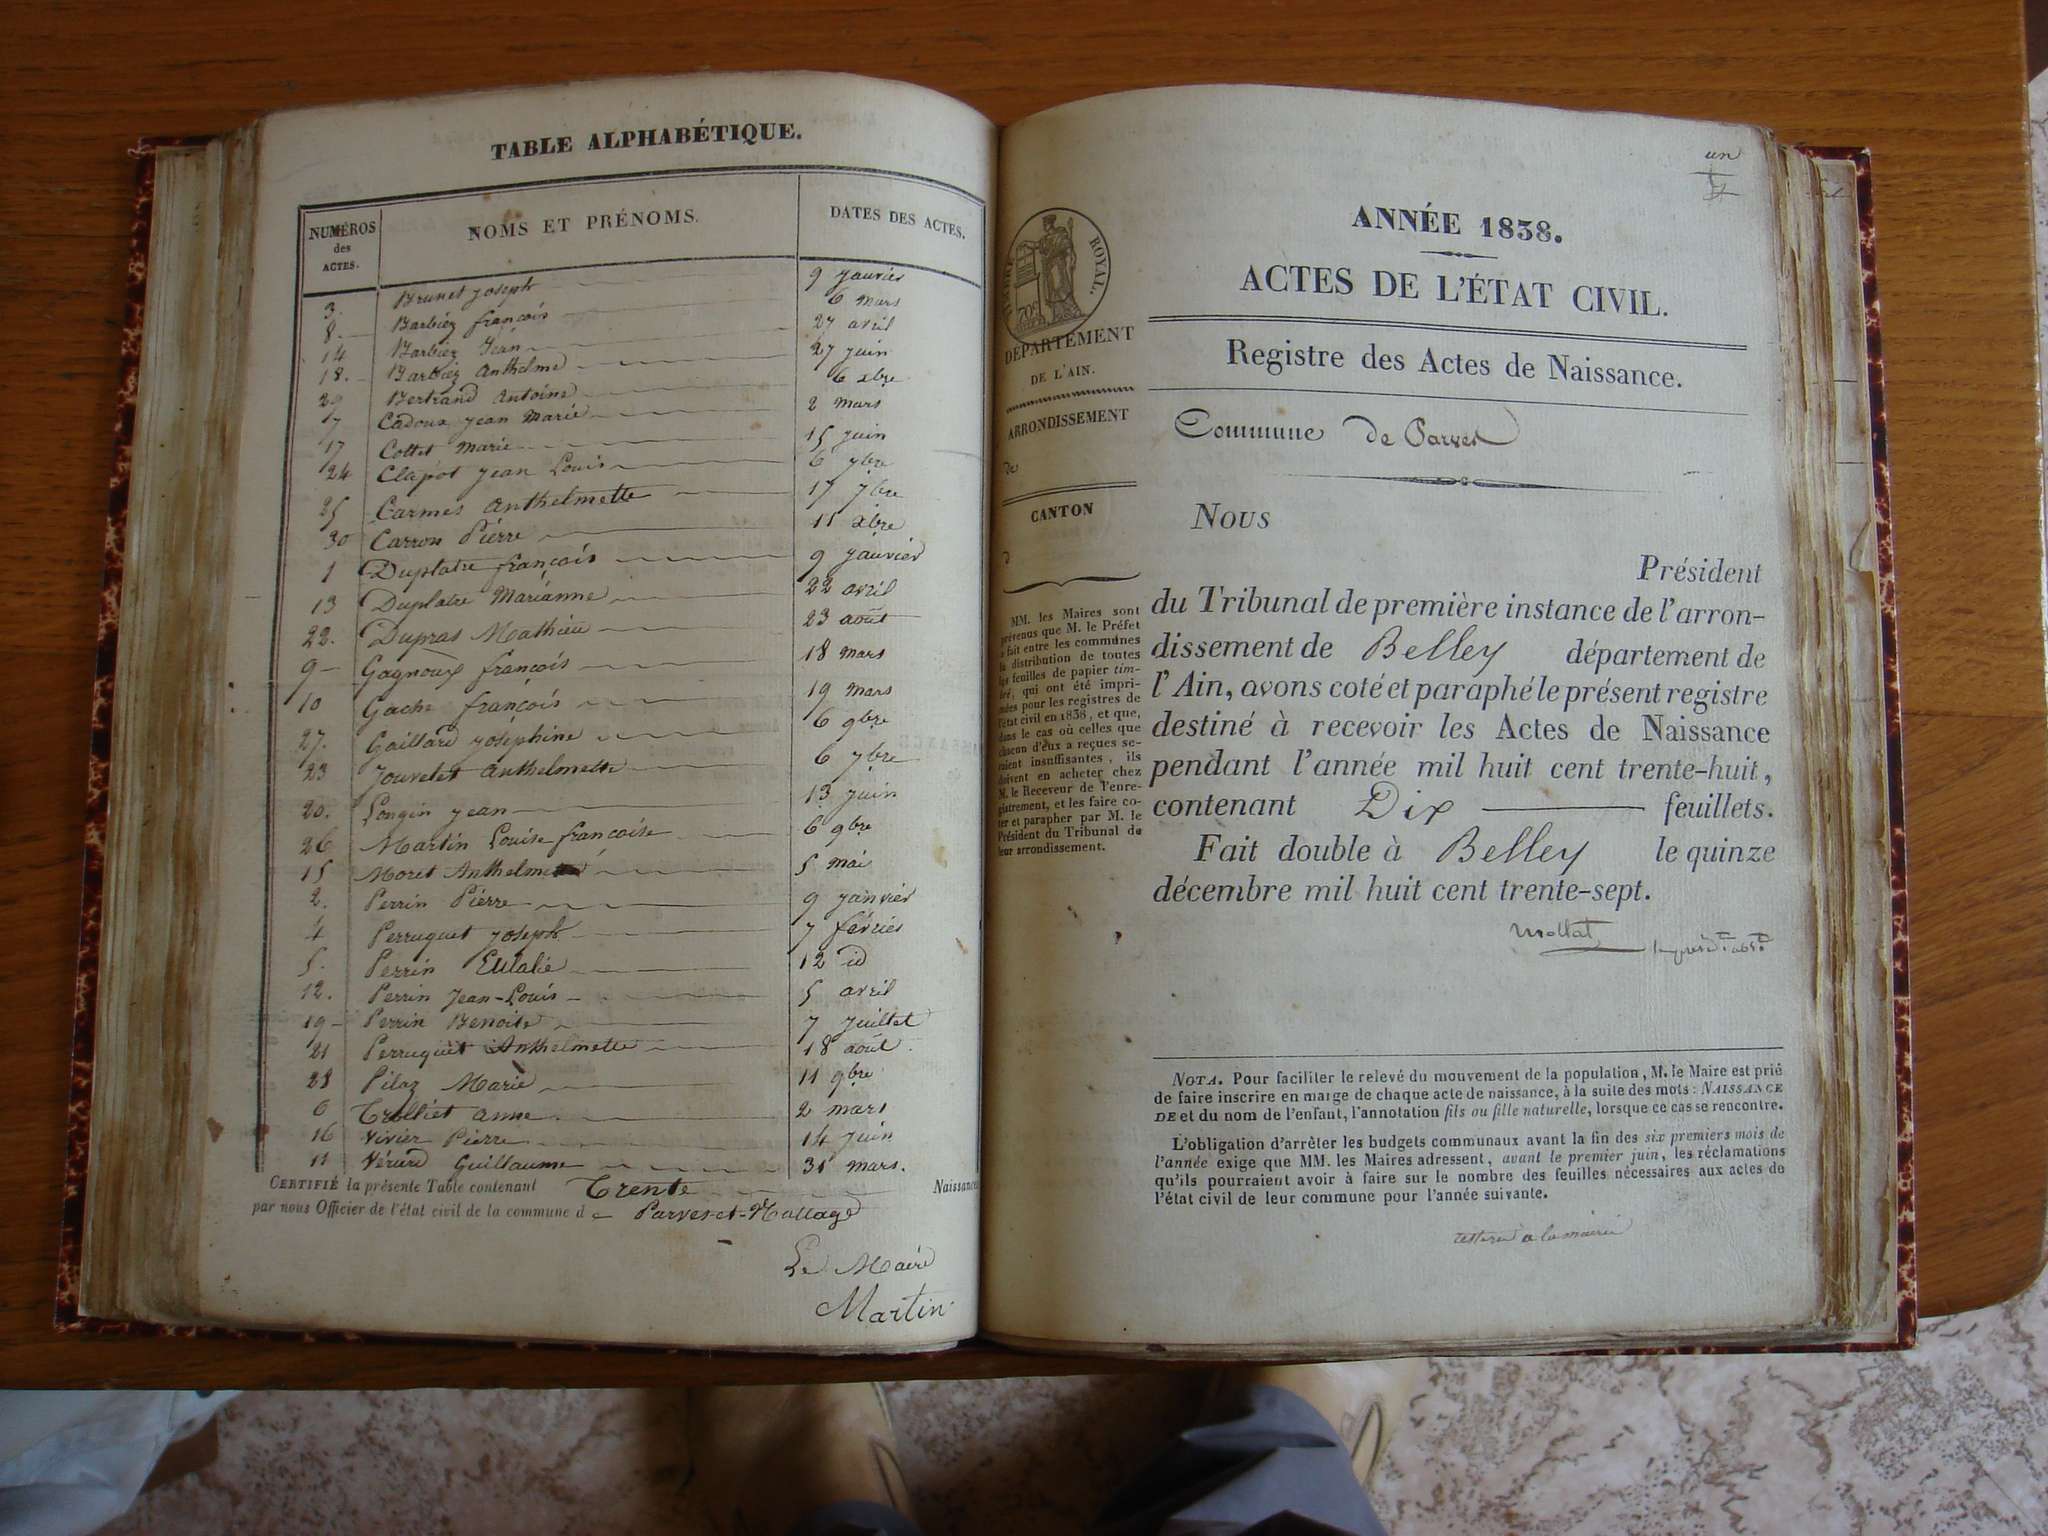 TABLE ALPHABÉTIQUE.
NUMÉROS des ACTES. NOMS ET PRÉNOMS. DATES DES ACTES.
3. Brunet Joseph 9 janvier
8. Barbiez françois 6 mars
14 Barbiez Jean 27 avril
18. Barbiez Anthelme 27 juin
29 Bertrand Antoine 6 xbre
7 Cadoux Jean Marie 2 mars
17 Cottet Marie 15 juin
24 Clapot Jean Louis 6 7bre
25 Carmes Anthelmette 17 7bre
30 Carron Pierre 11 xbre
1 Duplatre françois 9 janvier
13 Duplatre Marianne 22 avril
22. Dupras Mathieu 23 août
9 Gagnoux françois 18 mars
10 Gache françois 19 mars
27. Gaillard Joséphine 6 9bre
23 Jouvelet Anthelmette 6 7bre
20. Longin Jean 13 juin
26 Martin Louise françoise 6 9bre
15 Moret 5 mai
2. Perrin Pierre 9 janvier
4 Perruquet Joseph 7 février
5. Perrin Eulalie 12 id
12. Perrin Jean-Louis 5 avril
19 Perrin Benoite 7 juillet
21 Perruquet Anthelmette 18 août
28 Pilaz Marie 11 9bre
6 Trolliet Anne 2 mars
16 Vivier Pierre 14 juin
11 Guillaume 31 mars.
CERTIFIÉ la présente Table contenant Trente Naissance
par nous Officier de l'état civil de la commune de Parves-et-Nattage
Le Maire
Martin
un
ANNÉE 1838.
ACTES DE L'ÉTAT CIVIL.
Registre des Actes de Naissance.
Commune de Parves
ROYAL.
DÉPARTEMENT
DE L'AIN.
ARRONDISSEMENT
de
CANTON
d
MM. les Maires sont
prévenus que M. le Préfet
a fait entre les communes
la distribution de toutes
les feuilles de papier tim-
bré, qui ont été impri-
mées pour les registres de
l'état civil en 1838, et que,
dans le cas où celles que
chacun d'eux a reçues se-
raient insuffisantes, ils
doivent en acheter chez
M. le Receveur de l'enre-
gistrement, et les faire co-
ter et parapher par M. le
Président du Tribunal de
leur arrondissement.
NOUS
Président
du Tribunal de première instance de l'arron-
dissement de Belley département de
l'Ain, avons coté et paraphé le présent registre
destiné à recevoir les Actes de Naissance
pendant l'année mil huit cent trente-huit,
contenant Dix feuillets.
Fait double à Belley le quinze
décembre mil huit cent trente-sept.
Mollat
NOTA. Pour faciliter le relevé du mouvement de la population, M. le Maire est prié
de faire inscrire en marge de chaque acte de naissance, à la suite des mots: NAISSANCE
DE et du nom de l'enfant, l'annotation fils ou fille naturelle, lorsque ce cas se rencontre.
L'obligation d'arrêter les budgets communaux avant la fin des six premiers mois de
l'année exige que MM. les Maires adressent, avant le premier juin, les réclamations
qu'ils pourraient avoir à faire sur le nombre des feuilles nécessaires aux actes de
l'état civil de leur commune pour l'année suivante.
à la mairie